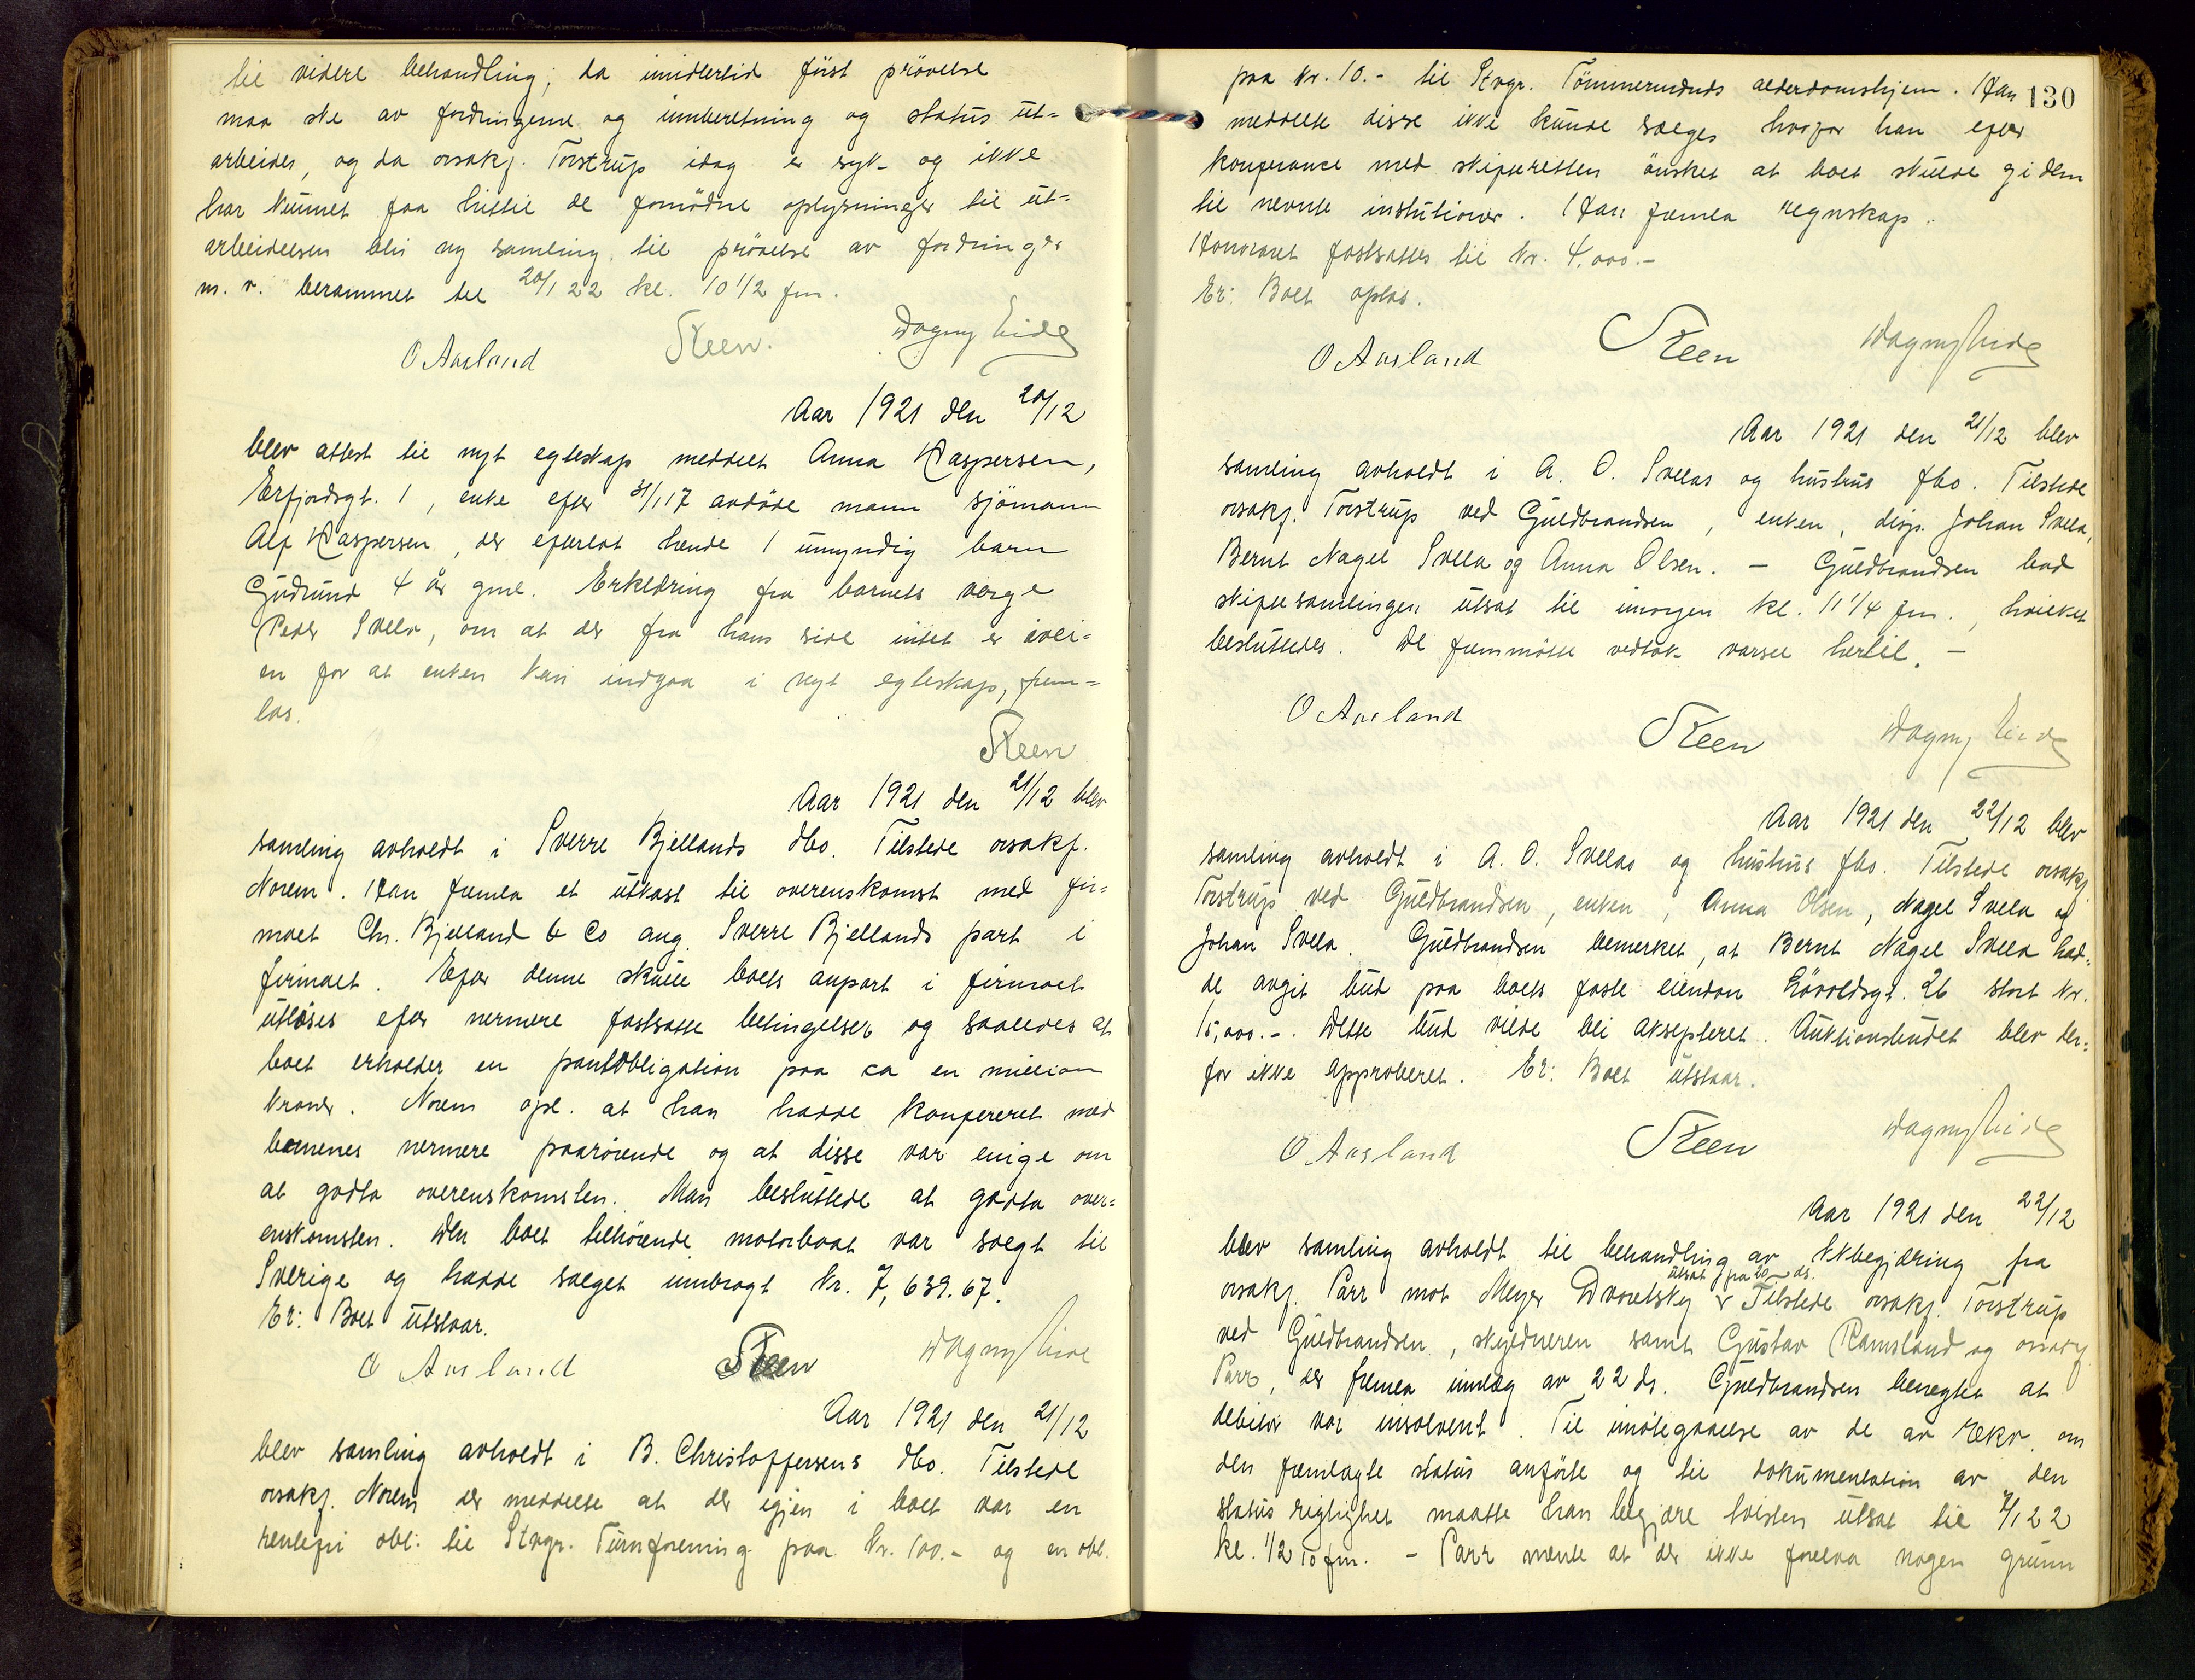 til videre behandling; da imidlertid først prøvelse
maa ske av fordringerne og innberetning og status ut-
arbeides, og da orsakf. Torstrup idag er syk og ikke
har kunnet faa hittil de fornødne oplysninger til ut-
arbeidelsen blir ny samling til prøvelse av fordringer
m. v. berammet til 20/1 22 kl. 10 1/2 fm.
O Aasland Steen. Dagny Eide
Aar 1921 den 20/12
blev attest til nyt egteskap meddelt Anna Kaspersen,
Erfjordsgt. 1, enke efter 31/1 17 avdøde mann sjømann
Alf Kaspersen, der efterlot hende 1 umyndig barn
Gudrund 4 år gml. Erklæring fra barnets verge
Peder Svela, om at der fra hans side intet er ivei-
en for at enken kan indgaa i nyt egteskap, frem-
las.
Steen
Aar 1921 den 21/12 blev
samling avholdt i Sverre Bjellands dbo. Tilstede orsakf.
Norem. Han fremla et utkast til overenskomst med fir-
maet Chr. Bjelland & Co ang. Sverre Bjellands part i
firmaet. Efter denne skulle boets anpart i firmaet
utløses efter nermere fastsatte betingelser og saaledes at
boet erholder en pantobligation paa ca en million
kroner. Norem opl. at han hadde konfereret med
barnenes nermere paarørende og at disse var enige om
at godta overenskomsten. Man besluttede at godta over-
enskomsten. Den boet tilhørende motorbaat var solgt til
Sverige og hadde salget innbragt kr. 7,639.67.
Er: Boet utstaar.
O Aasland Steen Dagny Eide
Aar 1921 den 21/12
blev samling avholdt i B. Christoffersens dbo. Tilstede
orsakf. Norem der meddelte at der igjen i boet var en
rentefri obl: til Stvgr. Turnforening paa kr. 100.- og en obl.
130
paa kr. 10.- til Stvgr. Tømmermænds alderdomshjem. Han
meddelte disse ikke kunde sælges hvorfor han efter
konferance med skifteretten ønsket at boet skulde gi dem
til nevnte instutioner. Han fremla regnskap.
Honoraret fastsattes til kr. 4,000.-
Er: Boet oplas.
O Aasland Steen Dagny Eide
Aar 1921 den 21/12 blev
samling avholdt i A. O. Svelas og hustrus fbo. Tilstede
orsakf. Torstrup ved Guldbrandsen, enken, disp. Johan Svela,
Bernt Nagel Svela og Anna Olsen. - Guldbrandsen bad
skiftesamlingen utsat til imorgen kl. 11 1/4 fm., hvilket
besluttedes. De fremmøtte vedtok varsel hertil. -
O Aasland Steen Dagny Eide
Aar 1921 den 22/12 blev
samling avholdt i A. O. Svelas og hustrus fbo. Tilstede orsakf
Torstrup ved Guldbrandsen, enken, Anna Olsen, Nagel Svela og
Johan Svela. Guldbrandsen bemerket, at Bernt Nagel Svela had-
de avgit bud paa boets faste eiendom 26 stort kr.
15,000.-. Dette bud vilde bli aksepteret. Auktionsbudet blev der-
for ikke approberet. Er: Boet utstaar.
O Aasland Steen Dagny Eide
Aar 1921 den 22/12
blev samling avholdt til behandling av kkbegjæring fra
utsat fra 20 ds.
orsakf. Parr mot Meyer Dworetsky Tilstede orsakf. Torstrup
ved Guldbrandsen, skyldneren samt Gustav Ramsland og orsakf
Parr, der fremla innlæg av 22 ds. Guldbrandsen benegtet at
debitor var insolvent. Til imøtegaaelse av de av rekv. om
den fremlagte status anførte og til dokumentation av den
status rigtighet maatte han begjære tvisten utsat til 7/1 22
kl. 1/2 10 fm. - Parr mente at der ikke forelaa nogen grunn